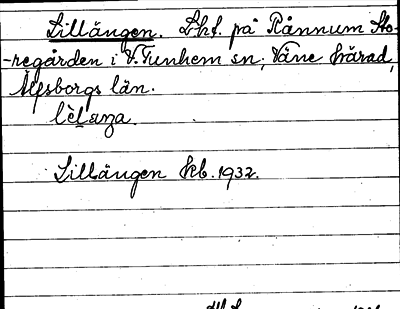 Lillängen. Lht. på Rånnum Sto-
-regården i V. Tunhem sn; Väne härad,
Älfsborgs län.
Lillängen kb. 1932.